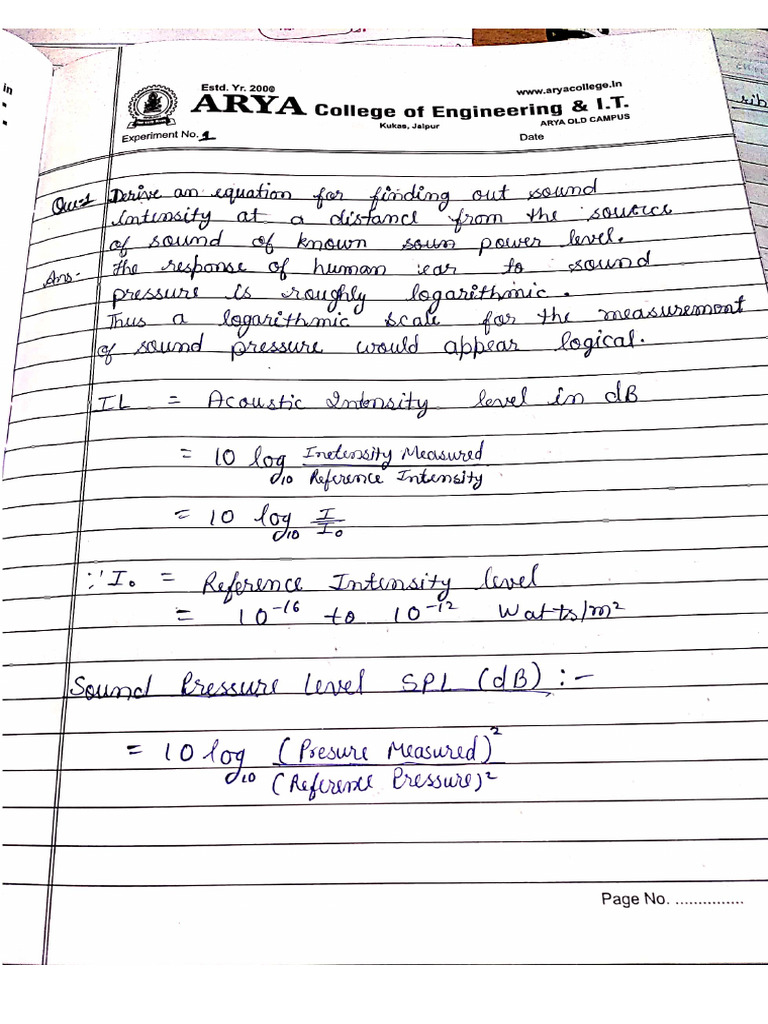 in
Estd. Yr. 2000
www.aryacollege.in
ARYA College of Engineering & I.T.
Kukas, Jaipur
ARYA OLD CAMPUS
Experiment No. 1
Date
rib
Qu=1 Derive an equation for finding out sound
intensity at a distance from the source
of sound of known soun power level.
Ans:- The response of human ear to sound
pressure is roughly logarithmic.
Thus a logarithmic scale for the measuremont
of sound pressure would appear logical.
IL = Acoustic Intensity level in dB
= 10 log10 Inetensity Measured / Reference Intensity
= 10 log10 I / I₀
∵ I₀ = Reference Intensity level
= 10⁻¹⁶ to 10⁻¹² Watts/m²
Sound Pressure level SPL (dB) :-
= 10 log10 (Presure Measured)² / (Reference Pressure)²
Page No. ...............